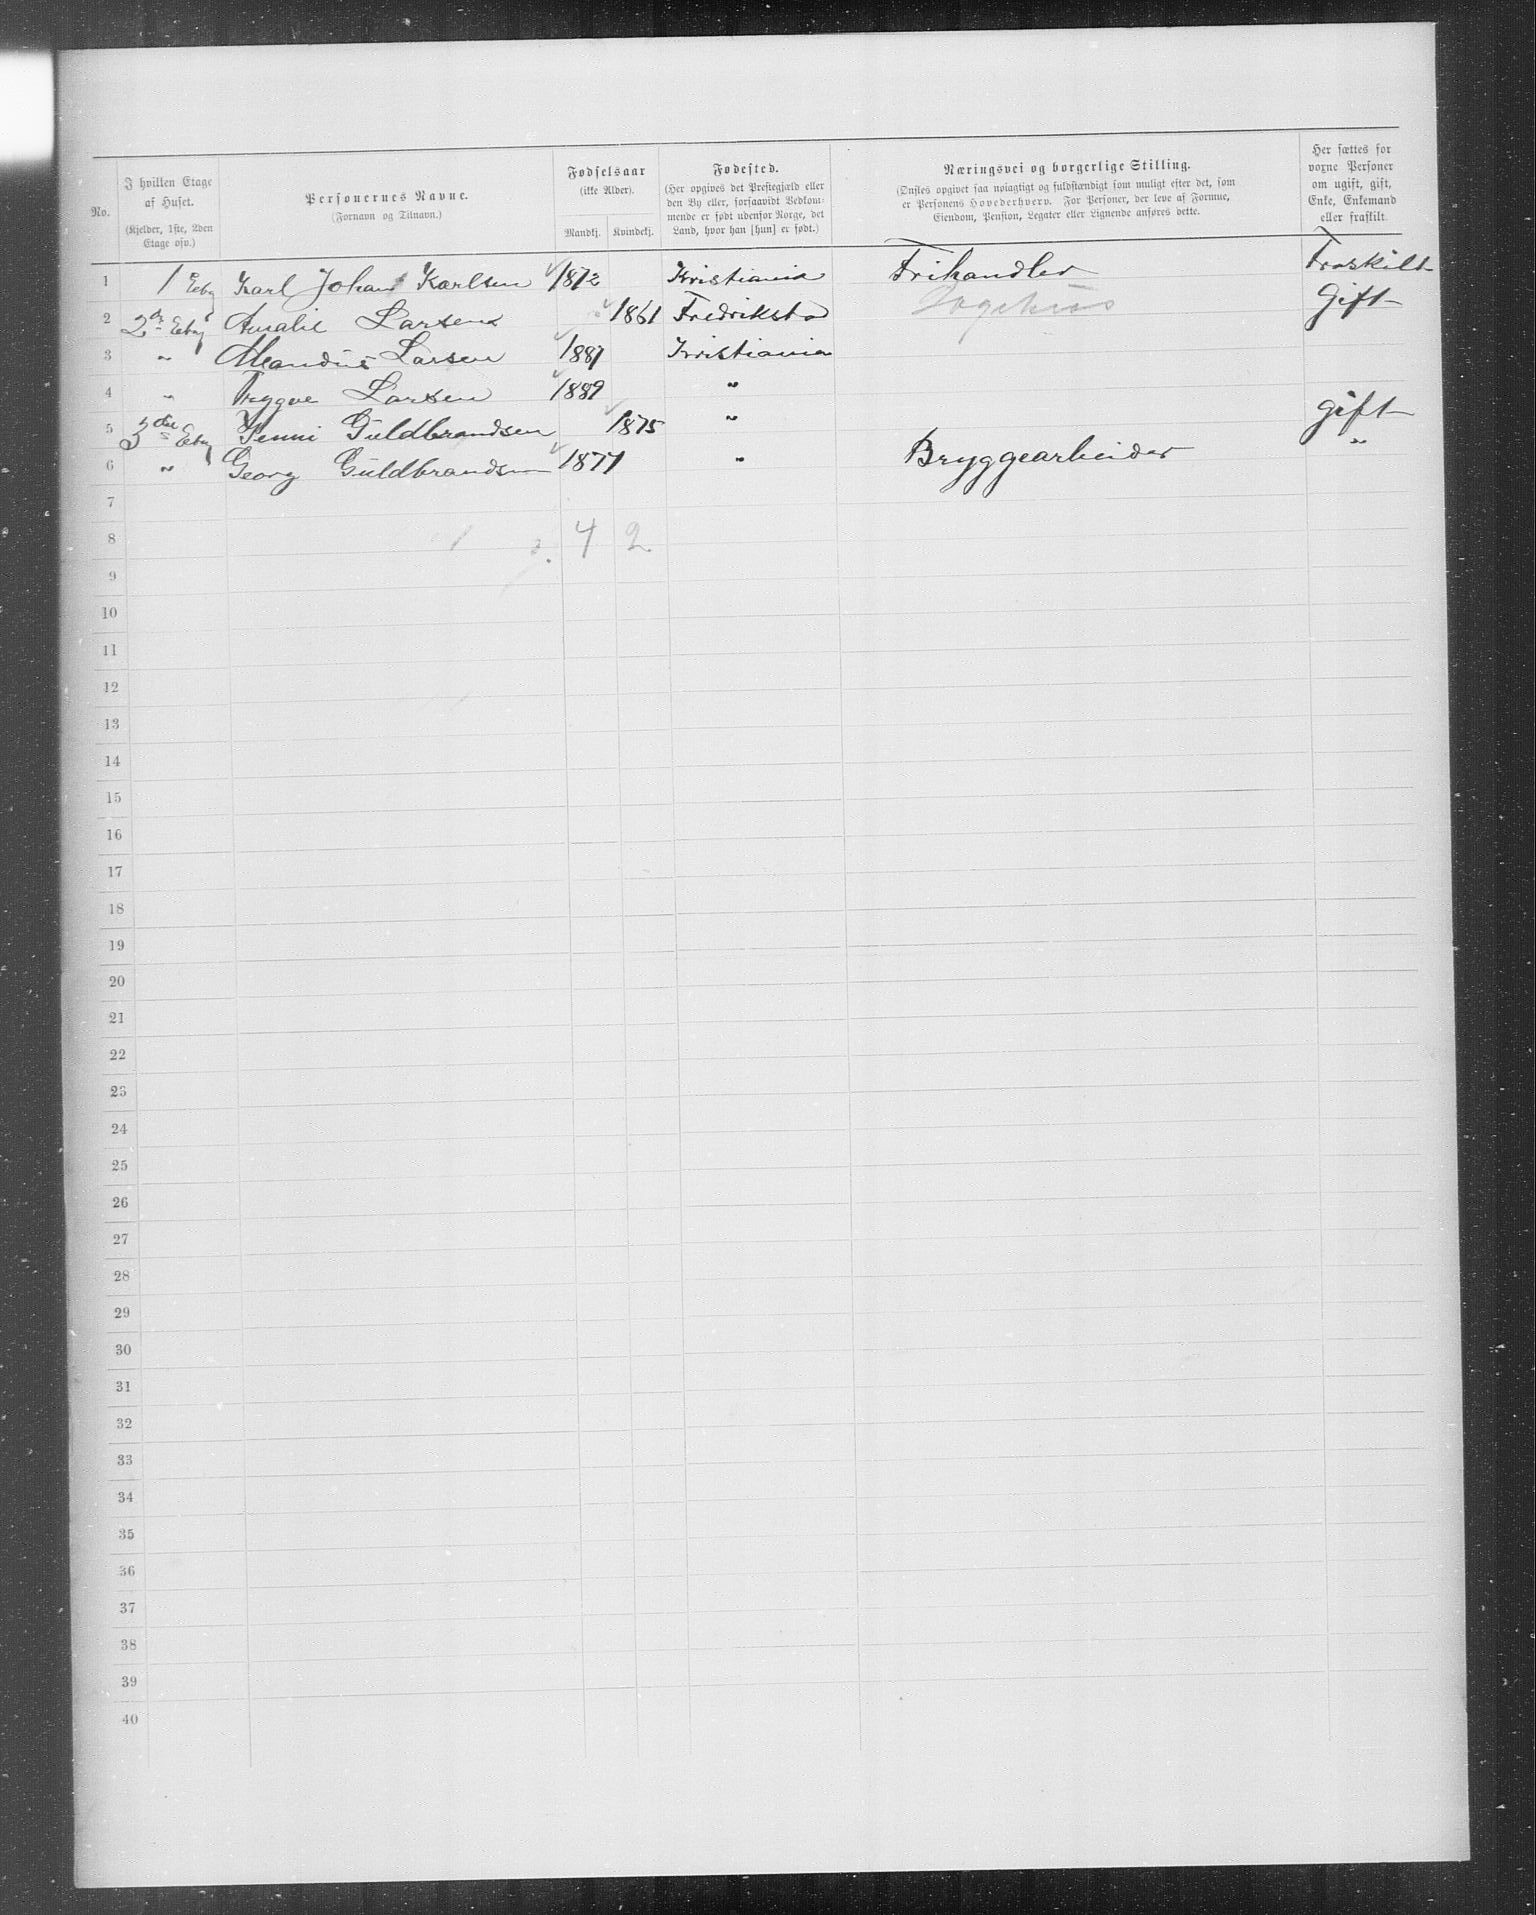 No. I hvilken Etage af Huset. (Kjelder, 1ste, 2den Etage osv.) Personernes Navne. (Fornavn og Tilnavn.) Fødselsaar (ikke Alder). Mandkj. Kvindekj. Fødested. (Her opgives det Prestegjæld eller den By eller, forsaavidt Vedkommende er født udenfor Norge, det Land, hvor han [hun] er født.) Næringsvei og borgerlige Stilling. (Ønskes opgivet saa nøiagtigt og fuldstændigt som muligt efter det, som er Personens Hovederhverv. For Personer, der leve af Formue, Eiendom, Pension, Legater eller Lignende anføres dette. Her sættes for voxne Personer om ugift, gift, Enke, Enkemand eller fraskilt.
1 1 Karl Johan Karlsen 1872 Kristiania Frihandler Fraskilt
2 2 Amalie Larsen 1861 Fredrikstad Gift
3 " Larsen 1887 Kristiania
4 " Trygve Larsen 1889 "
5 3 Jenni Guldbrandsen 1875 " gift
6 " Georg Guldbrandsen 1877 " Bryggearbeider "
7
8 4 2
9
10
11
12
13
14
15
16
17
18
19
20
21
22
23
24
25
26
27
28
29
30
31
32
33
34
35
36
37
38
39
40